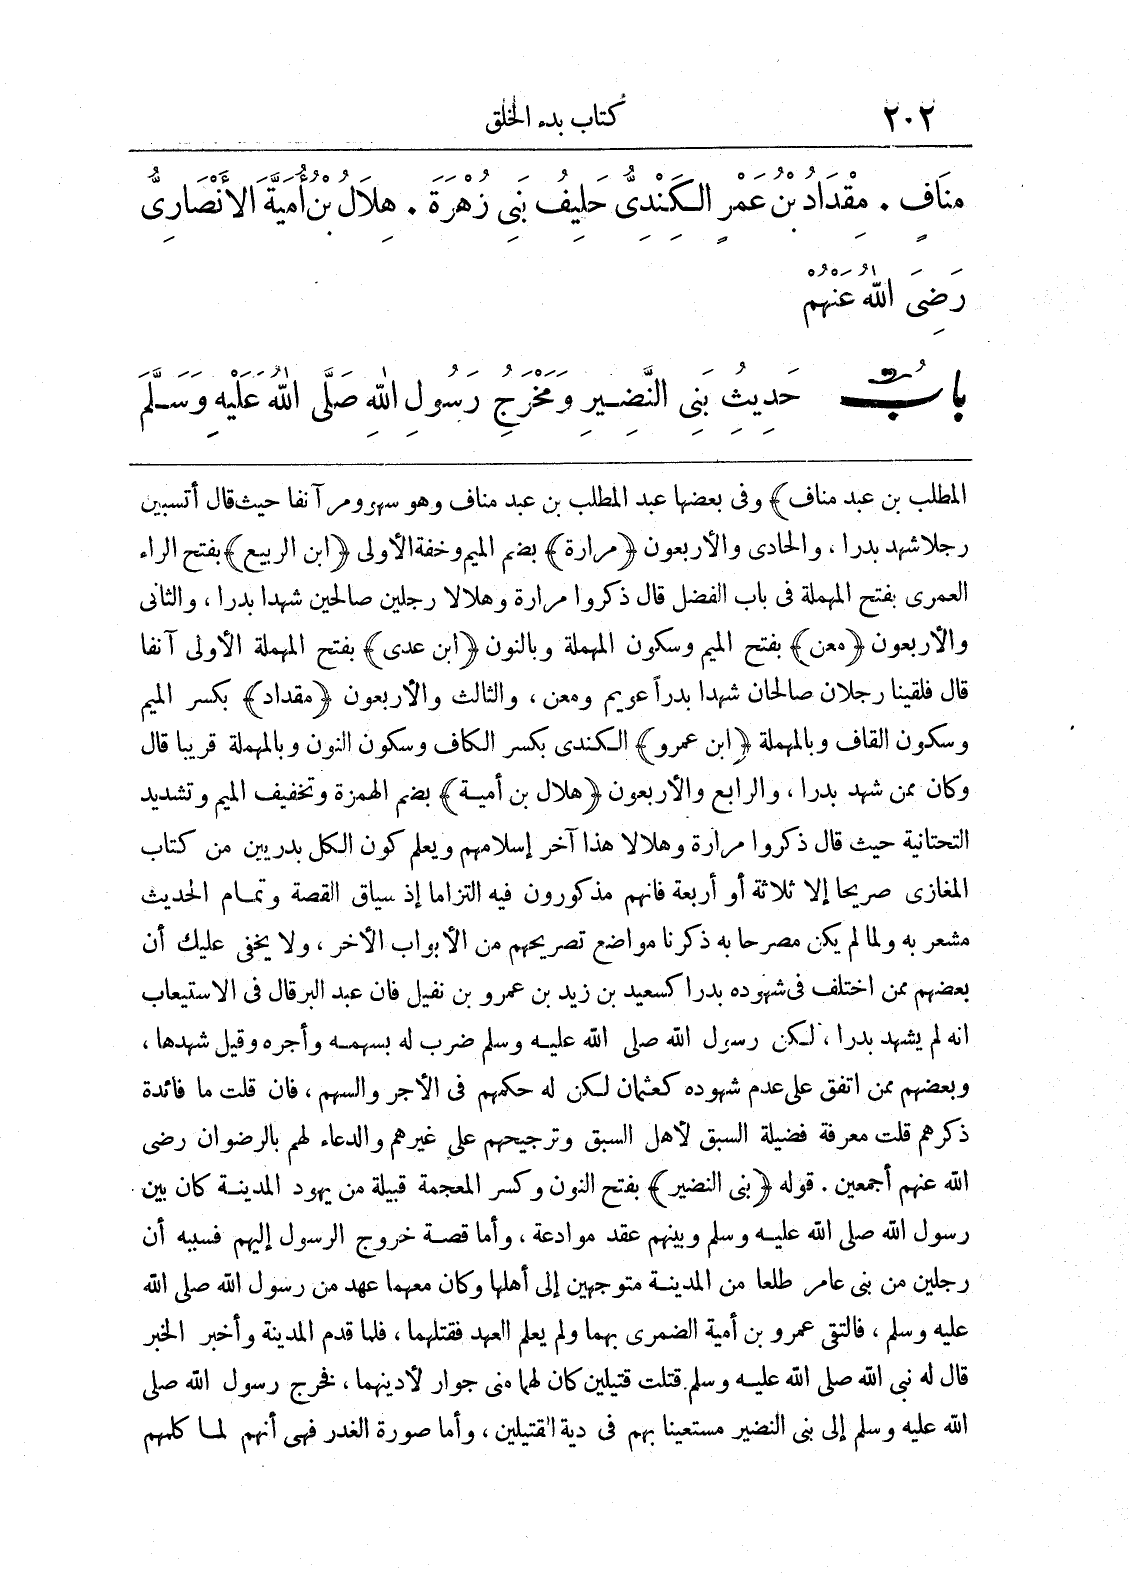 ٢٠٢ كتاب بدء الخلق
مَنَافٍ . مِقْدَادُ بْنُ عَمْرٍ الكِنْدِىُّ حَلِيفُ بَنِى زُهْرَةَ . هِلَالُ بْنُ أُمَيَّةَ الأَنْصَارِىُّ
رَضِىَ اللهُ عَنْهُمْ
بابُ حَدِيثُ بَنِى النَّضِيرِ وَمَخْرَجُ رَسُولِ اللهِ صَلَّى اللهُ عَلَيْهِ وَسَلَّمَ
المطلب بن عبد مناف) وفى بعضها عبد المطلب بن عبد مناف وهو سهو ومر آنفا حيث قال أتسبين
رجلا شهد بدرا ، والحادى والأربعون (مرارة) بضم الميم وخفة الأولى (ابن الربيع) بفتح الراء
العمرى بفتح المهملة فى باب الفضل قال ذكروا مرارة وهلالا رجلين صالحين شهدا بدرا ، والثانى
والأربعون (معن) بفتح الميم وسكون المهملة وبالنون (ابن عدى) بفتح المهملة الأولى آنفا
قال فلقينا رجلان صالحان شهدا بدراً عويم ومعن ، والثالث والأربعون (مقداد) بكسر الميم
وسكون القاف وبالمهملة (ابن عمرو) الكندى بكسر الكاف وسكون النون وبالمهملة قريبا قال
وكان ممن شهد بدرا ، والرابع والأربعون (هلال بن أمية) بضم الهمزة وتخفيف الميم وتشديد
التحتانية حيث قال ذكروا مرارة وهلالا هذا آخر إسلامهم ويعلم كون الكل بدريين من كتاب
المغازى صريحا إلا ثلاثة أو أربعة فانهم مذكورون فيه التزاما إذ سياق القصة وتمام الحديث
مشعر به ولما لم يكن مصرحا به ذكرنا مواضع تصريحهم من الأبواب الأخر ، ولا يخفى عليك أن
بعضهم ممن اختلف فى شهوده بدرا كسعيد بن زيد بن عمرو بن نفيل فان عبد البر قال فى الاستيعاب
انه لم يشهد بدرا ، لكن رسول الله صلى الله عليه وسلم ضرب له بسهمه وأجره وقيل شهدها ،
وبعضهم ممن اتفق على عدم شهوده كعثمان لكن له حكمهم فى الأجر والسهم ، فان قلت ما فائدة
ذكرهم قلت معرفة فضيلة السبق لأهل السبق وترجيحهم على غيرهم والدعاء لهم بالرضوان رضى
الله عنهم أجمعين . قوله (بنى النضير) بفتح النون وكسر المعجمة قبيلة من يهود المدينة كان بين
رسول الله صلى الله عليه وسلم وبينهم عقد موادعة ، وأما قصة خروج الرسول إليهم فسببه أن
رجلين من بنى عامر طلعا من المدينة متوجهين إلى أهلها وكان معهما عهد من رسول الله صلى الله
عليه وسلم ، فالتقى عمرو بن أمية الضمرى بهما ولم يعلم العهد فقتلهما ، فلما قدم المدينة وأخبر الخبر
قال له نبى الله صلى الله عليه وسلم قتلت قتيلين كان لهما منى جوار لأدينهما ، فخرج رسول الله صلى
الله عليه وسلم إلى بنى النضير مستعينا بهم فى دية القتيلين ، وأما صورة الغدر فهى أنهم لما كلمهم